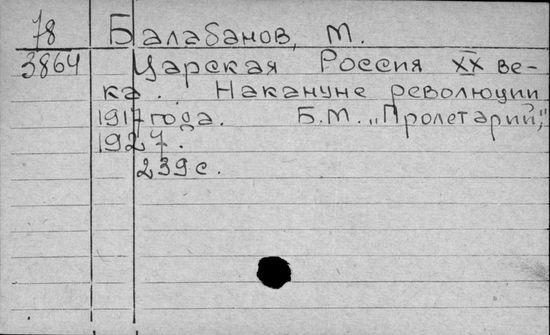 78 Балабанов, М.
3864 Царская Россия XX ве-
ка. Накануне революции
1917 года. Б.М. „Пролетарий,"
1927.
239 с.